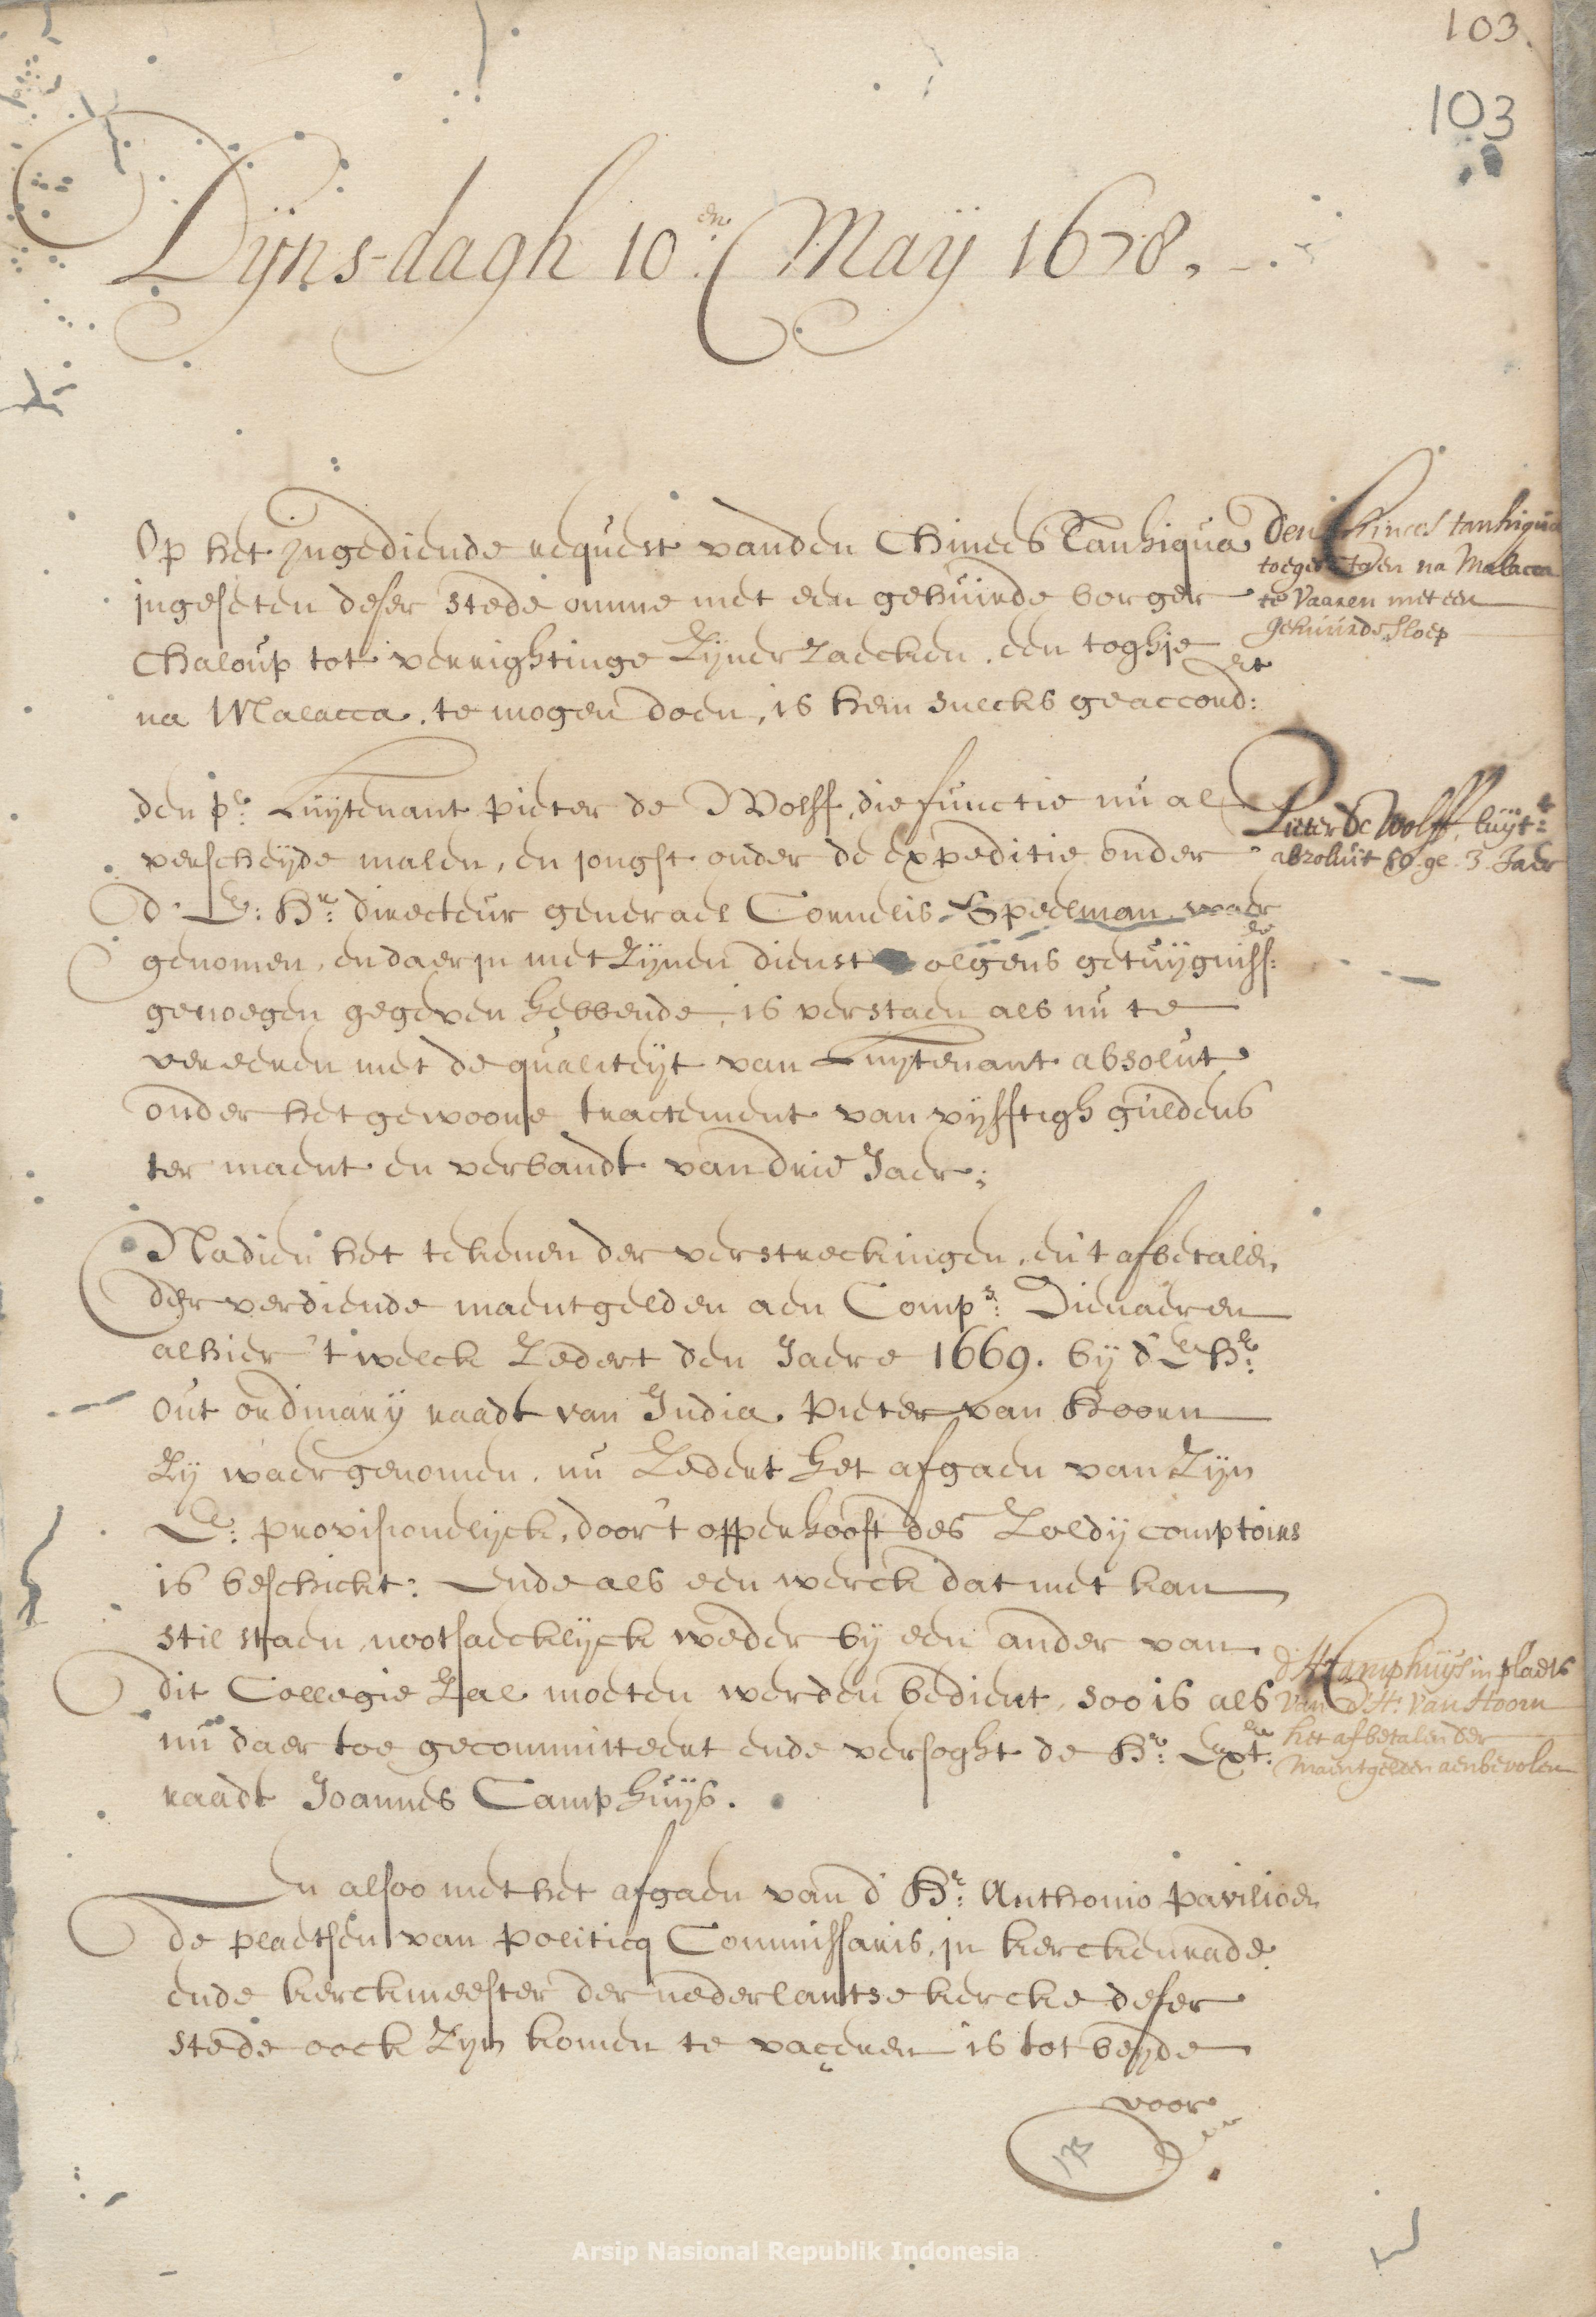 103.
103
Dijns-dagh 10:en Maij 1678.
Op het ingediende request vanden Chinees Tanhiqua
ingeseten deser stede omme met een gehuirde borger
Chaloup tot verrightinge zijner zaecken, een toghje
na Malacca, te mogen doen, is hem sulcks geaccord:eert
Den Chinees tanhiqua
toegestaen na Malacca
te Vaaren met een
gehuurde Sloep
den pl: Luijtenant pieter de Wolff, die functie nu al
verscheijde malen, en jongst onder de expeditie onder
d' E: Hr: directeur generael Cornelis Speelman waer
genomen, en daer in met zijnen dienst volgens getuijgniss:en
genoegen gegeven hebbende, is verstaen als nu te
vereeren met de qualiteijt van Luijtenant absolut
onder het gewoone tractement van vijfftigh guldens
ter maent en verbandt van drie Jaer;
Pieter de Wolff, luijt:t
absoluit 50. ge. 3. Jaer
Nadien het tekenen der verstreckingen, en 't afbetalen
der verdiende maentgelden aen Comps: Dienaeren
alhier 't welck zedert den Jaere 1669. bij d' E Hr:
out ordinarij raadt van India, Pieter van Hoorn
zij waergenomen, nu zedert het afgaen van zijn
E: provisioneelijck, door 't opperhooft des Zoldij comptoirs
is beschickt: Ende als een werck dat niet kan
stil staen, nootsaecklijck weder bij een ander van
dit Collegie zal moeten werden bedient, soo is als
nu daer toe gecommitteert ende versoght de Hr: Ext:
raadt Joannes Camphuijs.
d' Hr Camphuijs in plaets
van d' Hr: van Hoorn
het afbetalen der
maentgelden aenbevolen
En alsoo met het afgaen van d' Hr: Anthonio pavilioen
de plaetsen van politicq Commissaris, in kerckenrade
ende kerckmeester der nederlantse kercke deser
stede oock zijn komen te vaceren is tot beijde
voor
Arsip Nasional Republik Indonesia